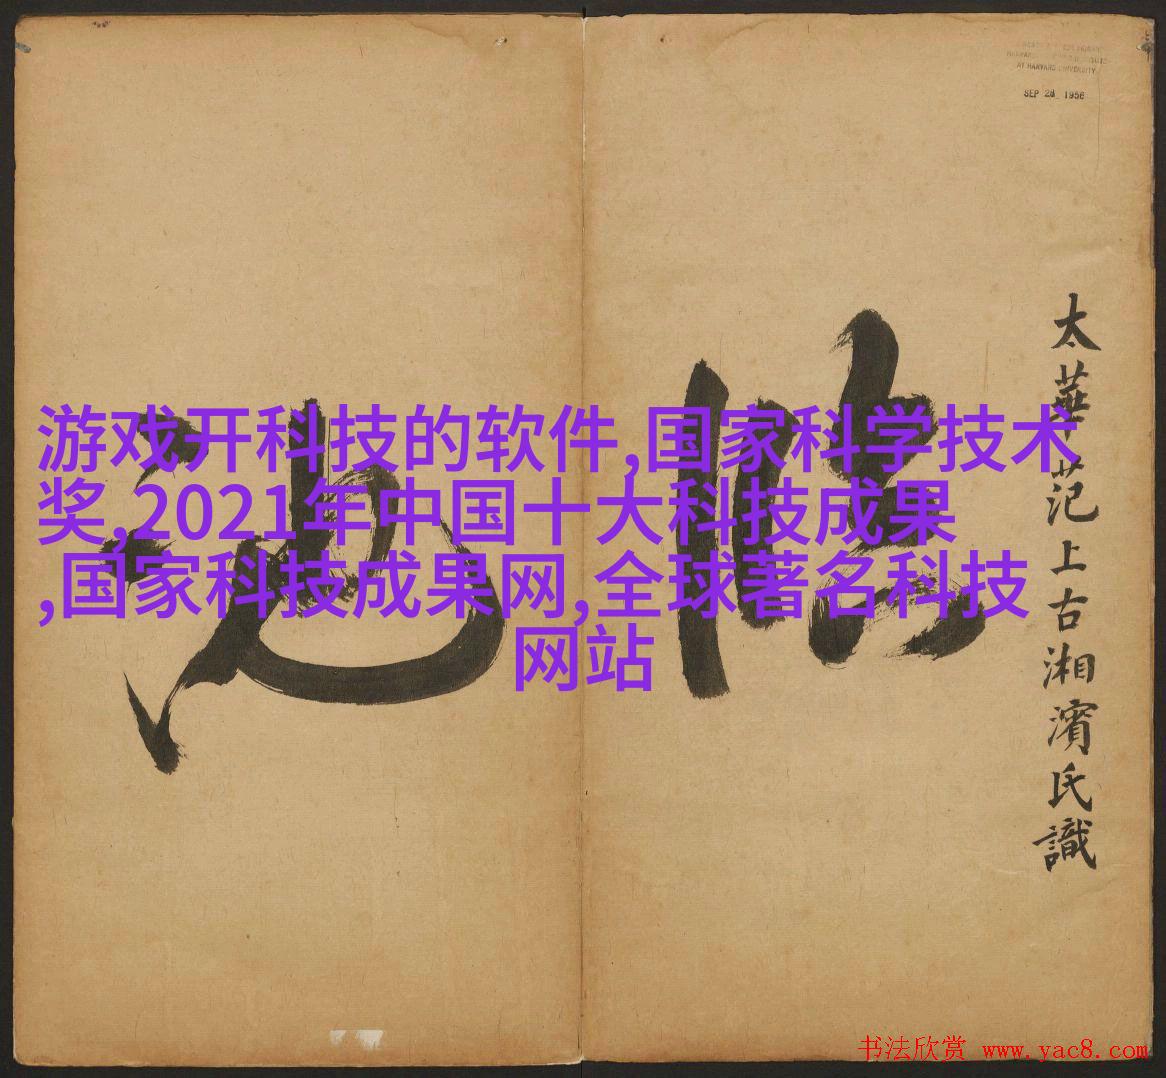 AT HARVARD UNIVERSITY
SEP 28 1956
太華范上古湘濱氏識
游戏开科技的软件,国家科学技术
奖,2021年中国十大科技成果
,国家科技成果网,全球著名科技
网站
书法欣赏 www.yac8.com